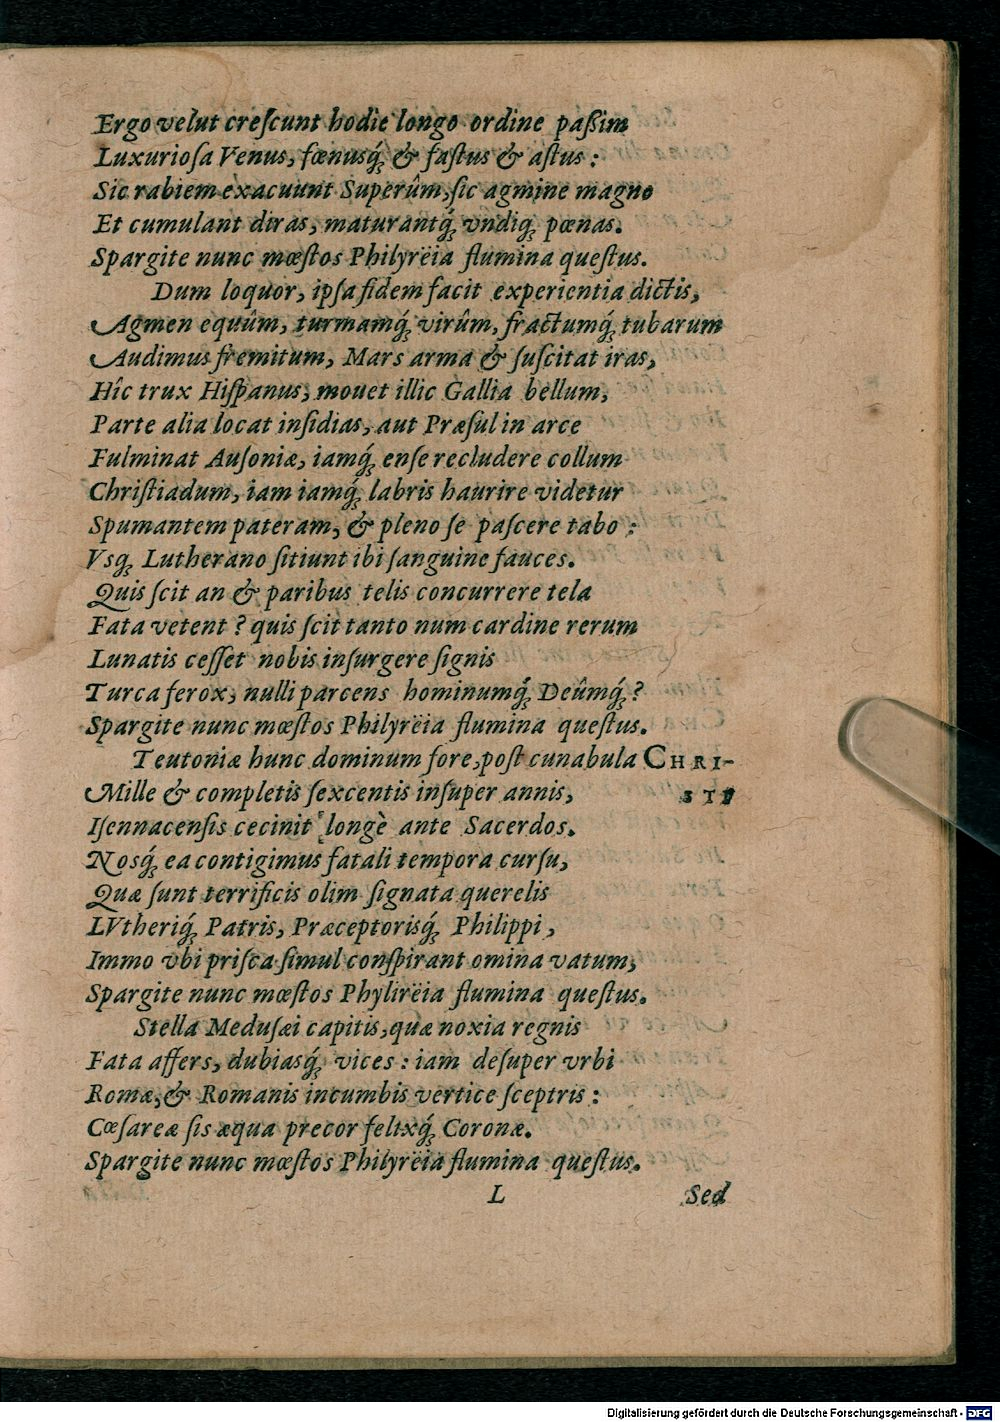 Ergo velut creſcunt hodie longo ordine paßim
Luxurioſa Venus, fœnusq́; & faſtus & aſtus :
Sic rabiem exacuunt Superûm, ſic agmine magno
Et cumulant diras, maturantq́; vndiq; pœnas.
Spargite nunc mœſtos Philyrëia flumina queſtus.
Dum loquor, ipſa fidem facit experientia dictis,
Agmen equûm, turmamq́; virûm, fractumq́; tubarum
Audimus fremitum, Mars arma & ſuſcitat iras,
Hîc trux Hiſpanus, mouet illic Gallia bellum,
Parte alia locat inſidias, aut Præſul in arce
Fulminat Auſoniæ, iamq́; enſe recludere collum
Chriſtiadum, iam iamq́; labris haurire videtur
Spumantem pateram, & pleno ſe paſcere tabo :
Vsq; Lutherano ſitiunt ibi ſanguine fauces.
Quis ſcit an & paribus telis concurrere tela
Fata vetent ? quis ſcit tanto num cardine rerum
Lunatis ceſſet nobis inſurgere ſignis
Turca ferox, nulli parcens hominumq́; Deûmq́; ?
Spargite nunc mœſtos Philyrëia flumina queſtus.
Teutoniæ hunc dominum fore, poſt cunabula CHRI-
Mille & completis ſexcentis inſuper annis, STI
Iſennacenſis cecinit longè ante Sacerdos.
Nosq́; ea contigimus fatali tempora curſu,
Quæ ſunt terrificis olim ſignata querelis
LVtheriq́; Patris, Præceptorisq́; Philippi,
Immo vbi priſca ſimul conſpirant omina vatum,
Spargite nunc mœſtos Phylirëia flumina queſtus.
Stella Meduſæi capitis, quæ noxia regnis
Fata affers, dubiasq́; vices : iam deſuper vrbi
Romæ, & Romanis incumbis vertice ſceptris :
Cœſareæ ſis æqua precor felixq́; Coronæ.
Spargite nunc mœſtos Philyrëia flumina queſtus.
L Sed
Digitalisierung gefördert durch die Deutsche Forschungsgemeinschaft - DFG